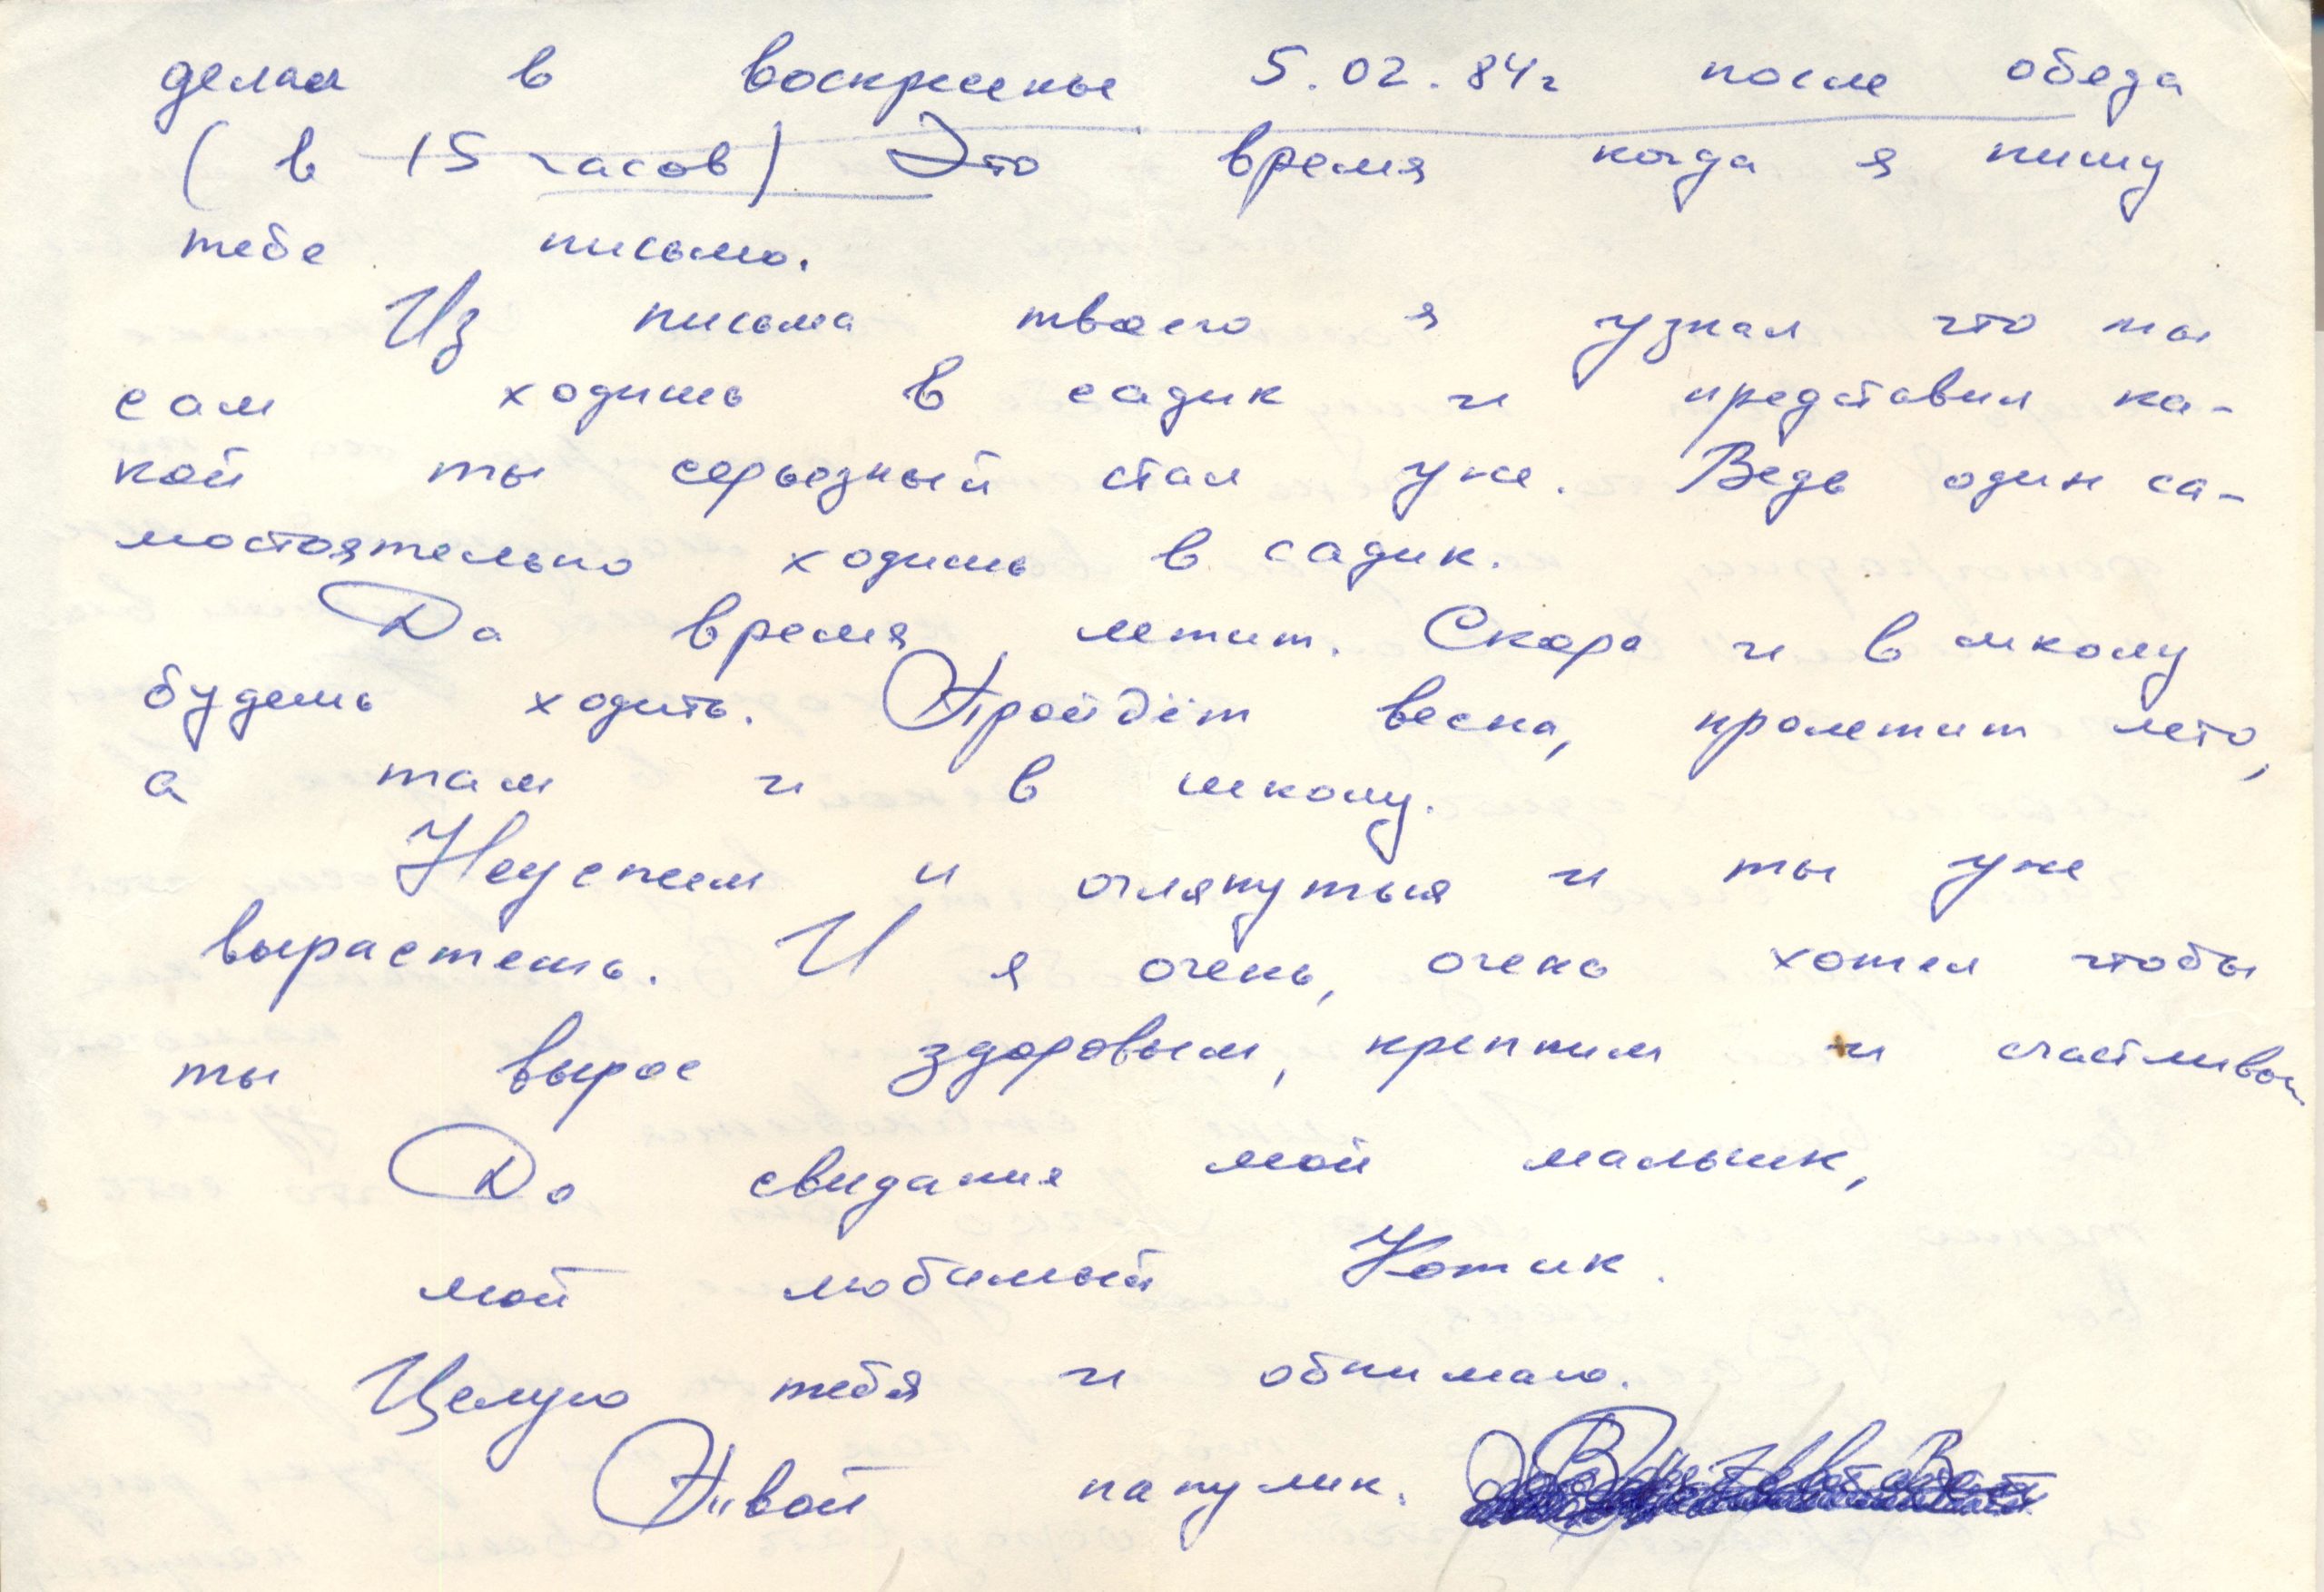 делал в воскресенье 5.02.84г после обеда
(в 15 часов) Это время когда я пишу
тебе письмо.
Из письма твоего я узнал что ты
сам ходишь в садик и представил ка-
кой ты серьезный стал уже. Ведь один са-
мостоятельно ходишь в садик.
Да время летит. Скоро и в школу
будешь ходить. Пройдёт весна, пролетит лето,
а там и в школу.
Неуспеем и оглянуться и ты уже
вырастешь. И я очень, очень хотел чтобы
ты вырос здоровым, крепким и счастливым
До свидания мой мальчик,
мой любимый Котик.
Целую тебя и обнимаю.
Твой папулик.